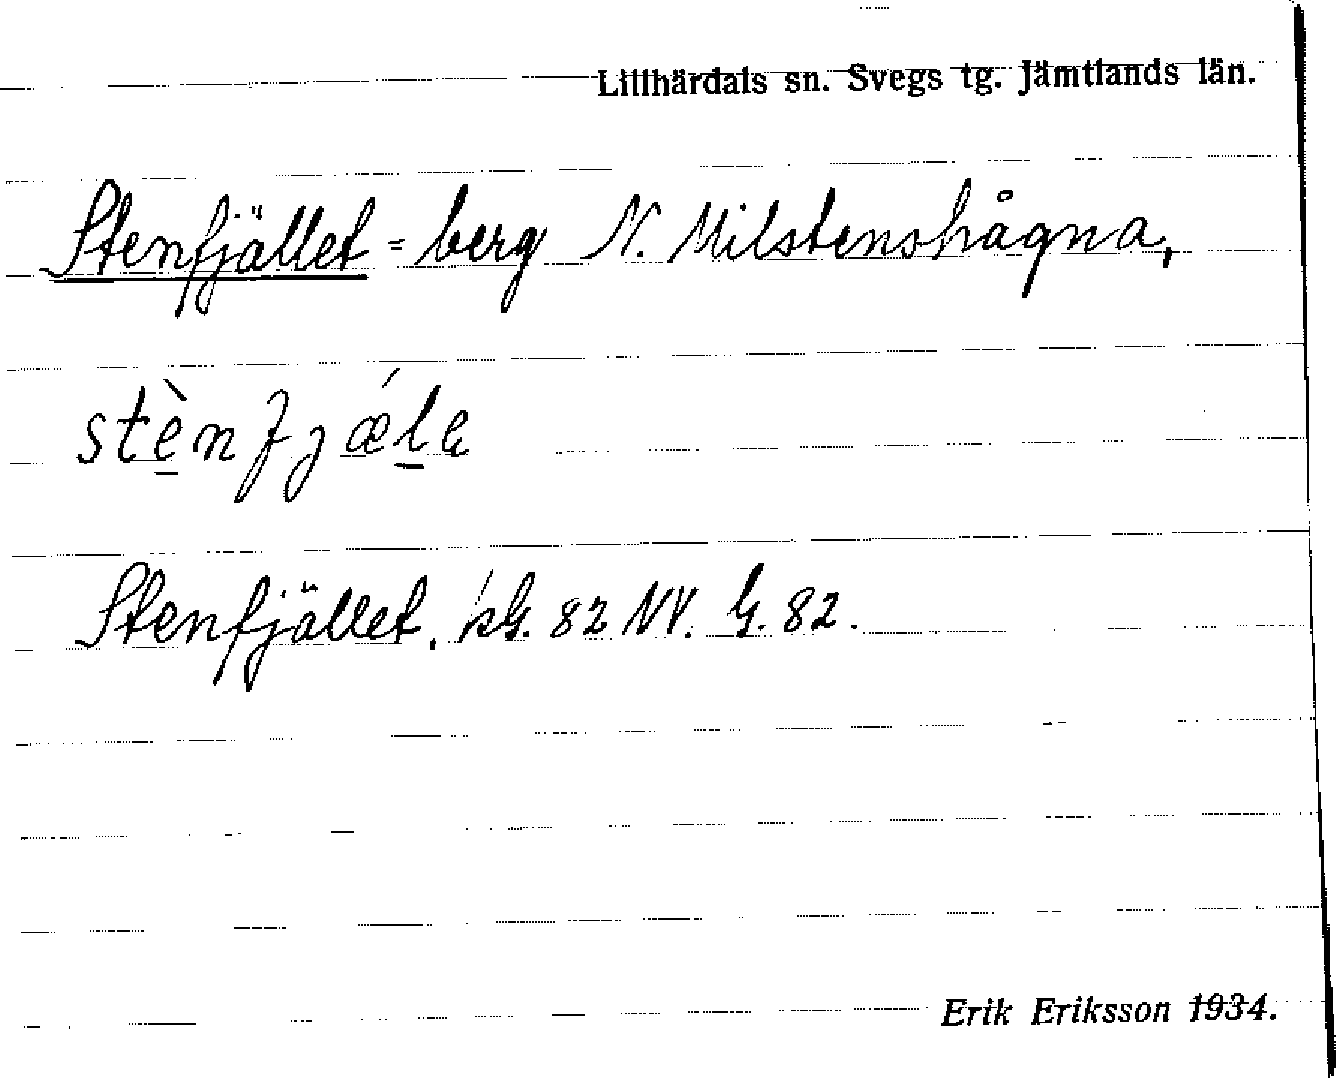 Lillhärdals sn. Svegs tg. Jämtlands län.
Stenfjället = berg N. Milstenshågna,
stè̱nfjǽḻe
Stenfjället, kG. 82 NV. G. 82.
Erik Eriksson 1934.